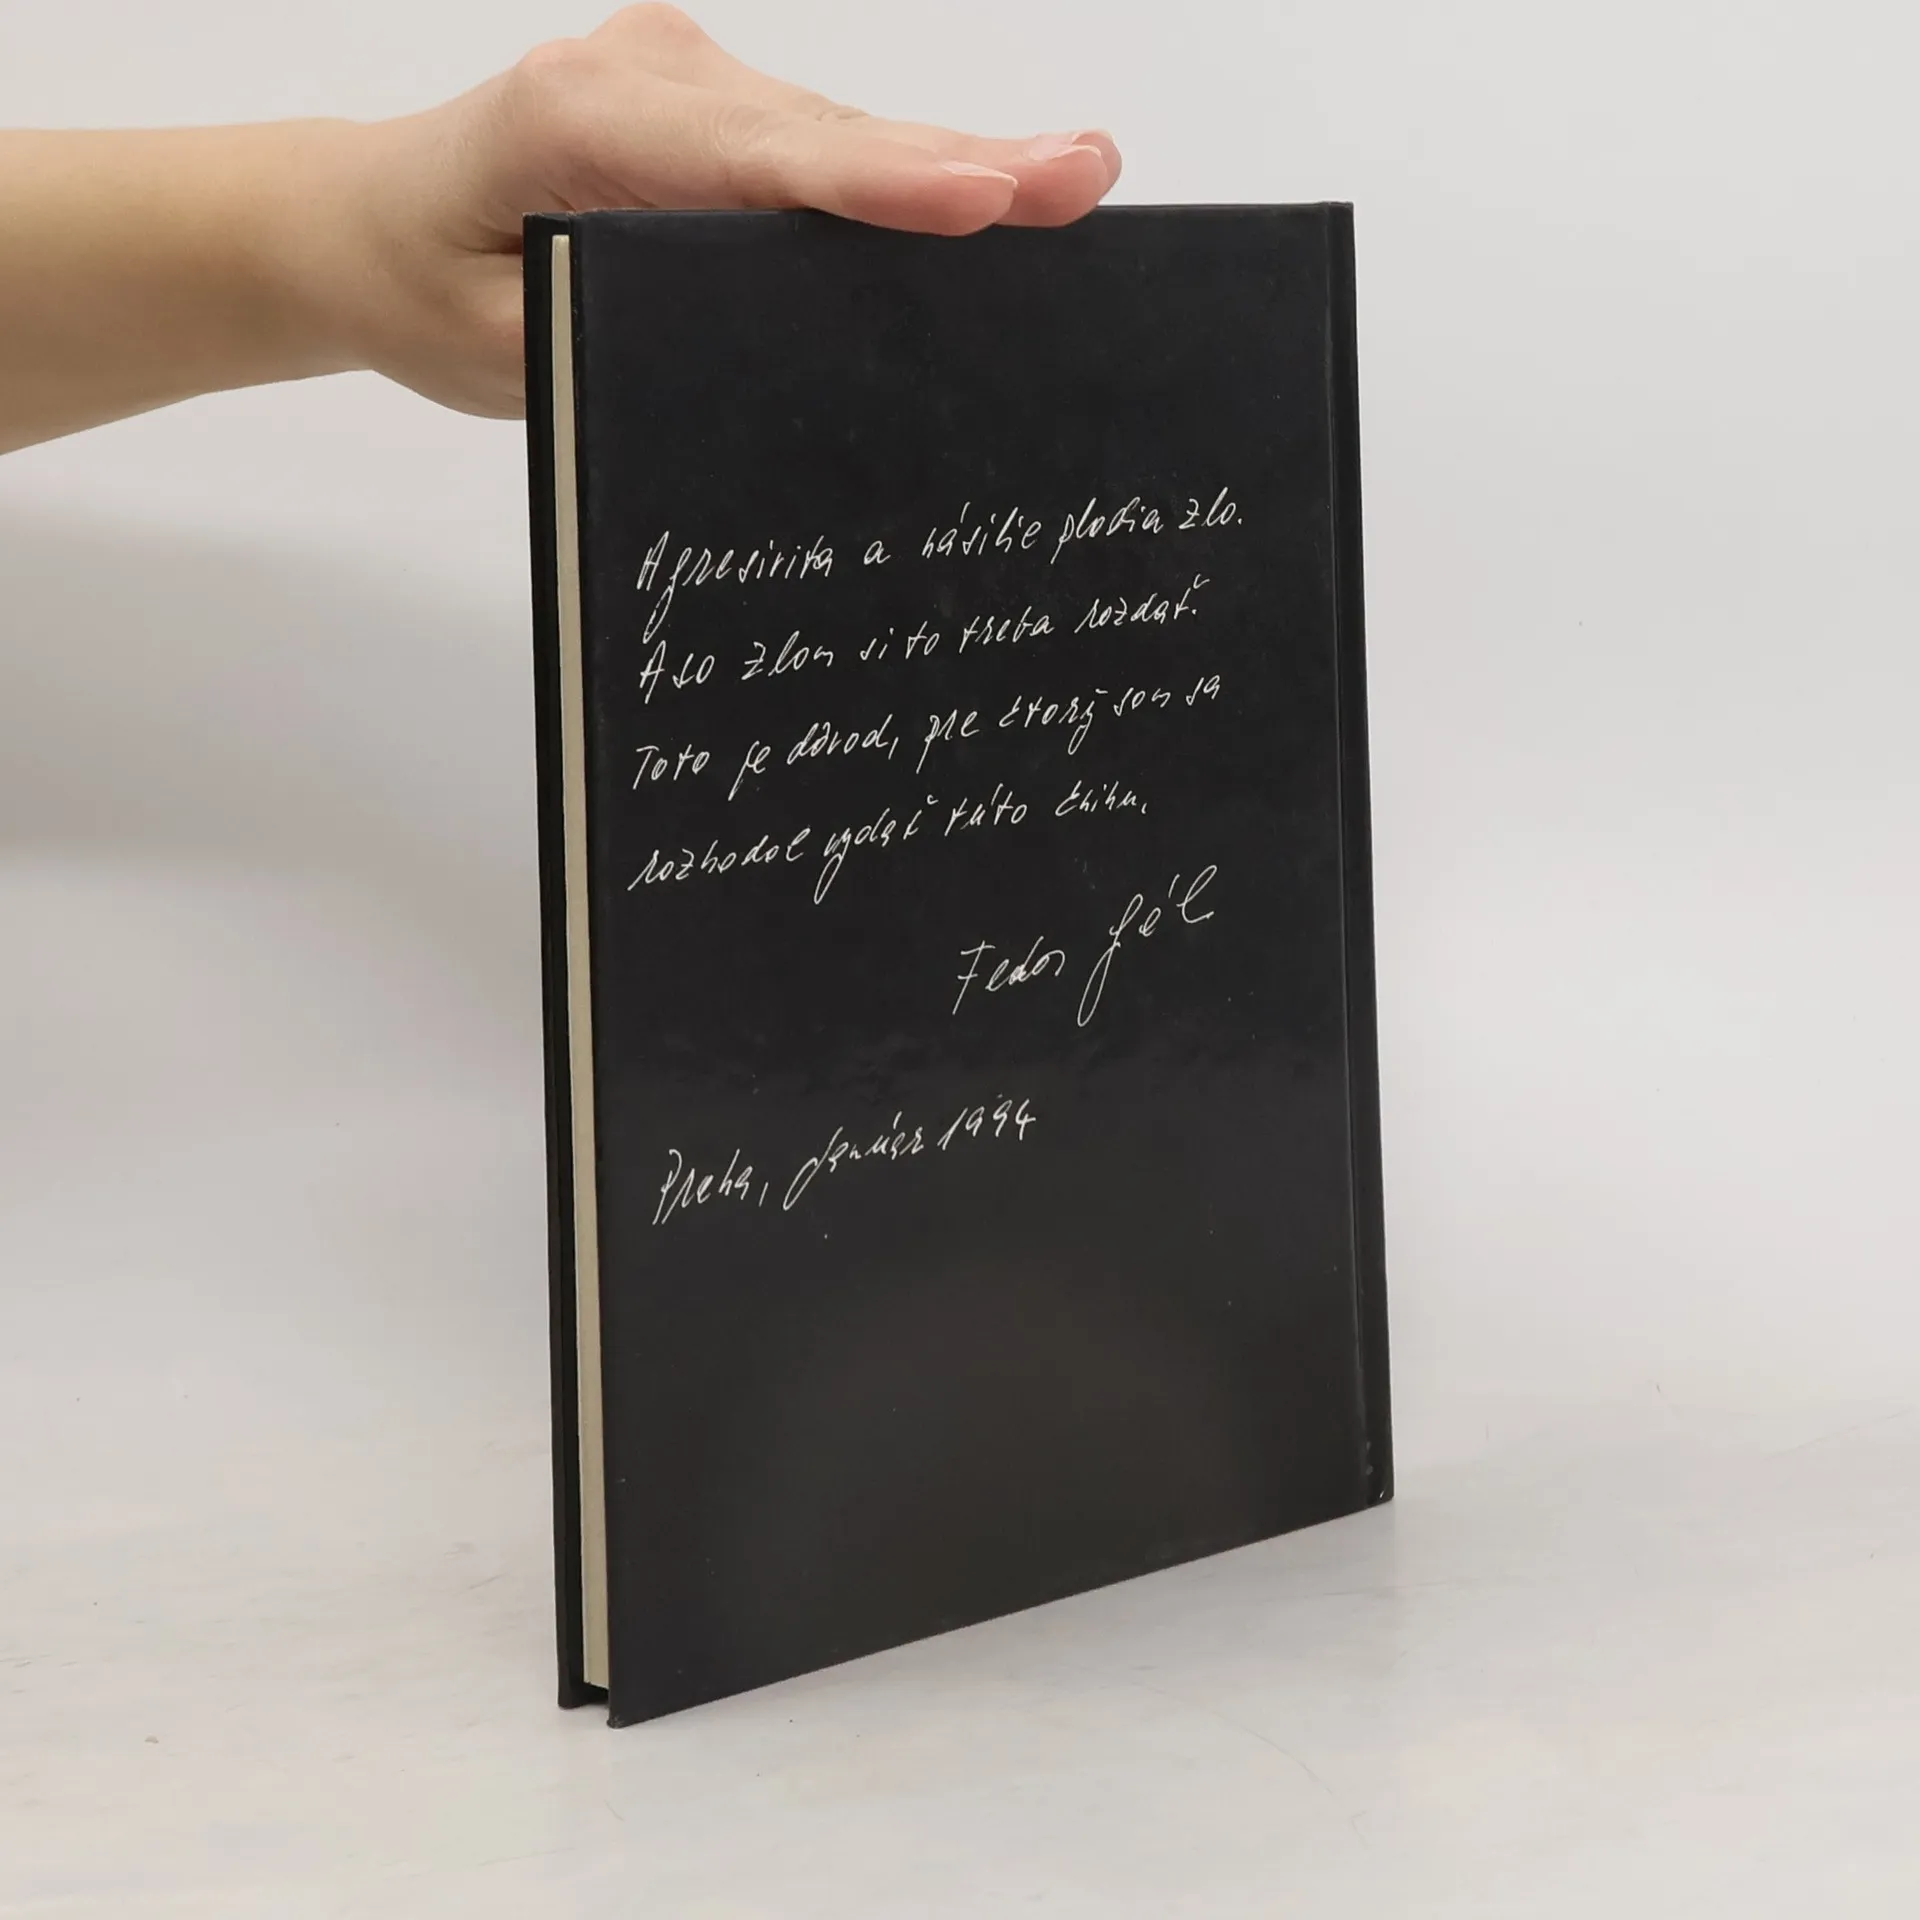 Agresivita a násilie plodia zlo.
A so zlom si to treba rozdať.
Toto je dôvod, pre ktorý som sa
rozhodol vydať túto knihu.
Fedor Gál
Praha, január 1994